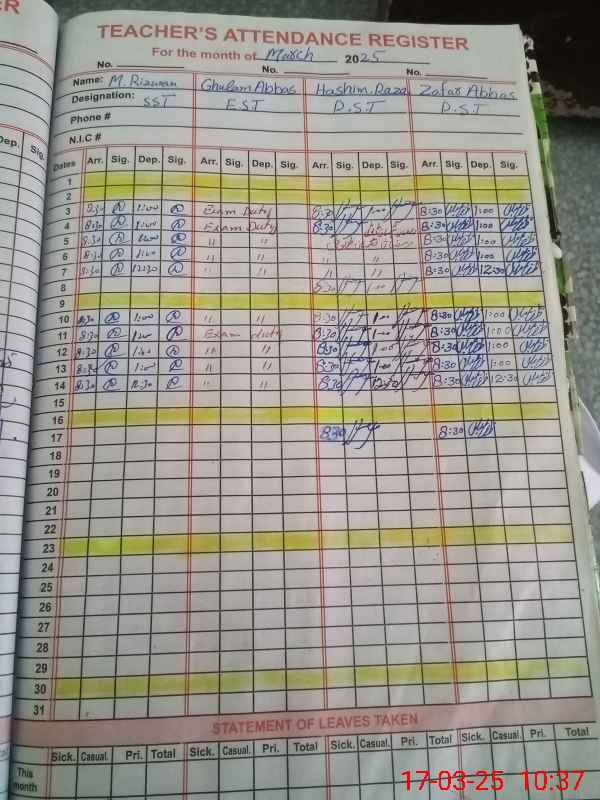 ER
TEACHER'S ATTENDANCE REGISTER
For the month of March 2025
No. No. No.
Name: M. Rizwan Ghulam Abbas Hashim Raza Zafar Abbas
Designation: SST E.S.T P.S.T P.S.T
Phone #
N.I.C #
Dep. Sig.
Dates Arr. Sig. Dep. Sig. Arr. Sig. Dep. Sig. Arr. Sig. Dep. Sig. Arr. Sig. Dep. Sig.
1
2
3 8:30 1:00 Exam Duty 8:30 1:00 8:30 1:00
4 8:30 1:00 Exam Duty 8:30 8:30 1:00
5 8:30 1:00 " " 8:30 1:00
6 8:30 1:00 " " " " 8:30 1:00
7 8:30 12:30 " " " " 8:30 12:30
8 8:30 1:00
9
10 8:30 1:00 " " 8:30 1:00 8:30 1:00
11 8:30 1:00 Exam duty 8:30 1:00 8:30 1:00
12 8:30 1:00 " " 8:30 1:00 8:30 1:00
13 8:30 1:00 " " 8:30 1:00 8:30 1:00
14 8:30 12:30 " " 8:30 12:30 8:30 12:30
15
16
17 8:30 8:30
18
19
20
21
22
23
24
25
26
27
28
29
30
31
STATEMENT OF LEAVES TAKEN
Sick. Casual. Pri. Total Sick. Casual. Pri. Total Sick. Casual. Pri. Total Sick. Casual. Pri. Total
This month
17-03-25 10:37